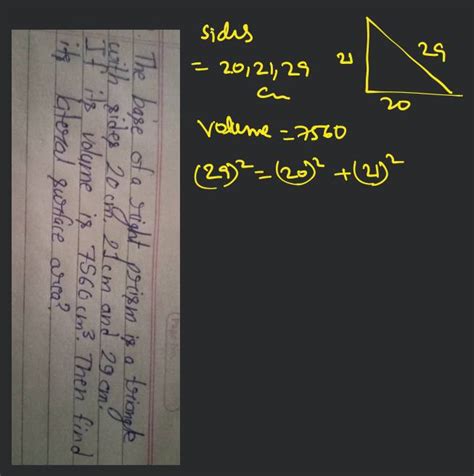 The base of a right prism is a triangle
with sides 20 cm, 21 cm and 29 cm.
If its volume is 7560 cm³. Then find
its lateral surface area?
sides
= 20, 21, 29
cm
Volume = 7560
(29)² = (20)² + (21)²
21
29
20